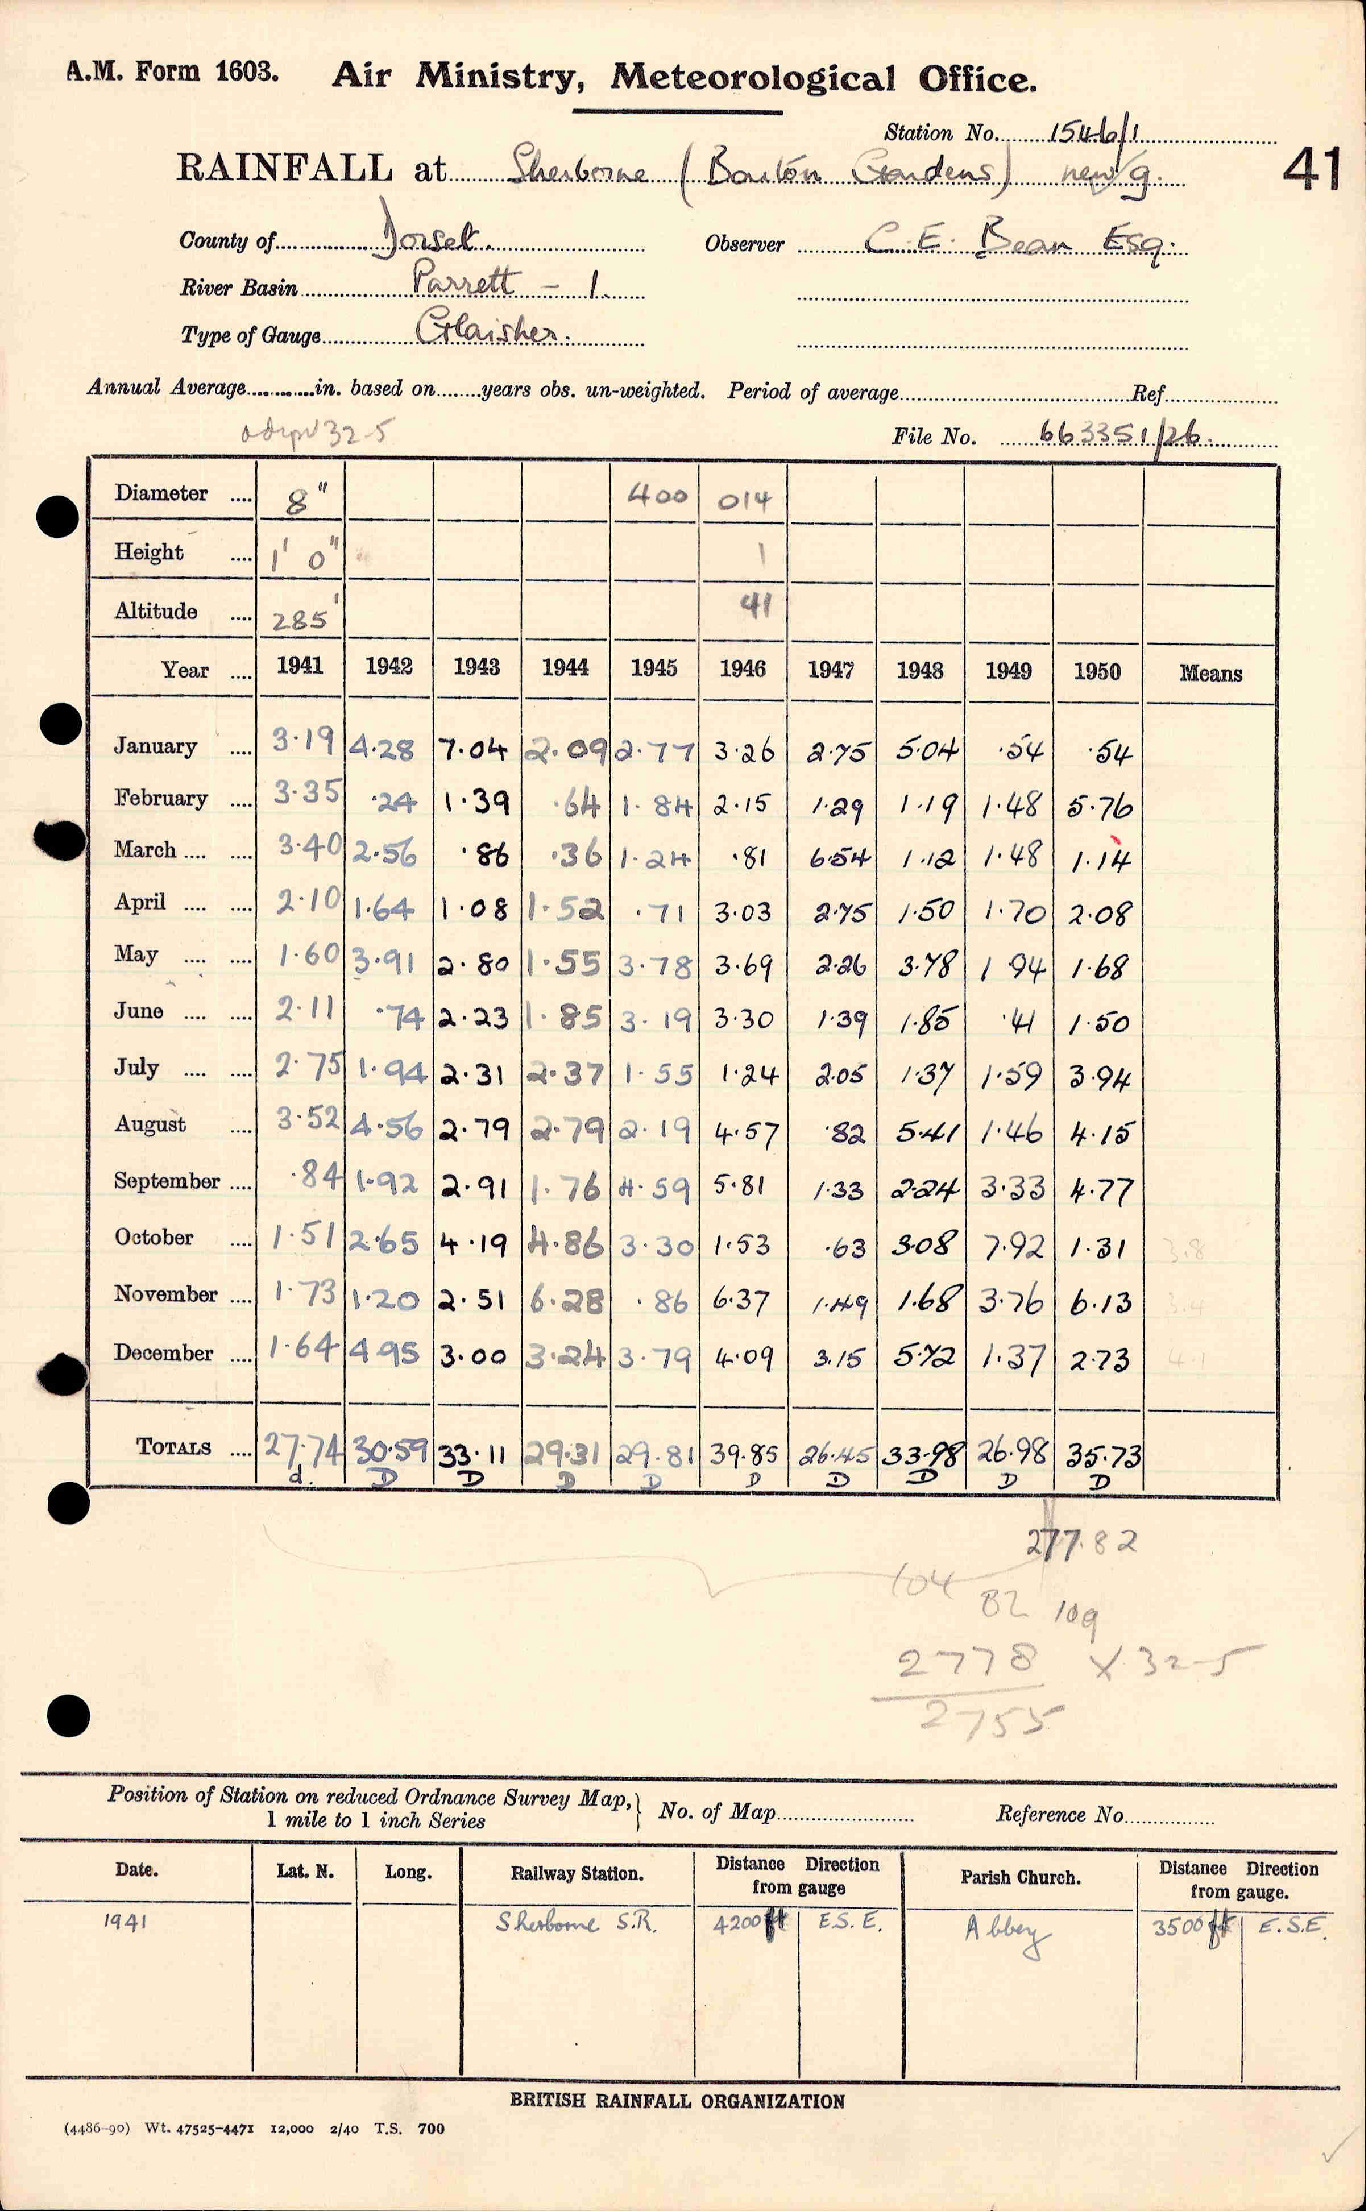 A.M. Form 1603. Air Ministry, Meteorological Office.
Station No. 1546/1
RAINFALL at Sherborne (Bourton Gardens) new/g. 41
County of Dorset. Observer C. E. Bean Esq.
River Basin Parrett - 1.
Type of Gauge Glaisher.
Annual Average in. based on years obs. un-weighted. Period of average Ref
32-5 File No. 663351/26.
Diameter 8" 400 014
Height 1' 0" 1
Altitude 285' 41
Year 1941 1942 1943 1944 1945 1946 1947 1948 1949 1950 Means
January 3.19 4.28 7.04 2.09 2.77 3.26 2.75 5.04 .54 .54
February 3.35 .24 1.39 .64 1.84 2.15 1.29 1.19 1.48 5.76
March 3.40 2.56 .86 .36 1.24 .81 6.54 1.12 1.48 1.14
April 2.10 1.64 1.08 1.52 .71 3.03 2.75 1.50 1.70 2.08
May 1.60 3.91 2.80 1.55 3.78 3.69 2.26 3.78 1 94 1.68
June 2.11 .74 2.23 1.85 3.19 3.30 1.39 1.85 .41 1.50
July 2.75 1.94 2.31 2.37 1.55 1.24 2.05 1.37 1.59 3.94
August 3.52 4.56 2.79 2.79 2.19 4.57 .82 5.41 1.46 4.15
September .84 1.92 2.91 1.76 4.59 5.81 1.33 2.24 3.33 4.77
October 1.51 2.65 4.19 4.86 3.30 1.53 .63 3.08 7.92 1.31 3.8
November 1.73 1.20 2.51 6.28 .86 6.37 1.49 1.68 3.76 6.13 3.4
December 1.64 4.95 3.00 3.24 3.79 4.09 3.15 5.72 1.37 2.73 4.1
TOTALS 27.74 30.59 33.11 29.31 29.81 39.85 26.45 33.98 26.98 35.73
d. D D D D D D D D D
277.82
104
82 109
2778 X 32-5
2755
Position of Station on reduced Ordnance Survey Map,} No. of Map Reference No.
1 mile to 1 inch Series
Date. Lat. N. Long. Railway Station. Distance Direction from gauge Parish Church. Distance Direction from gauge.
1941 Sherborne S.R. 4200 ft E.S.E. Abbey 3500 ft E.S.E.
BRITISH RAINFALL ORGANIZATION
(4486-90) Wt. 47525-4471 12,000 2/40 T.S. 700